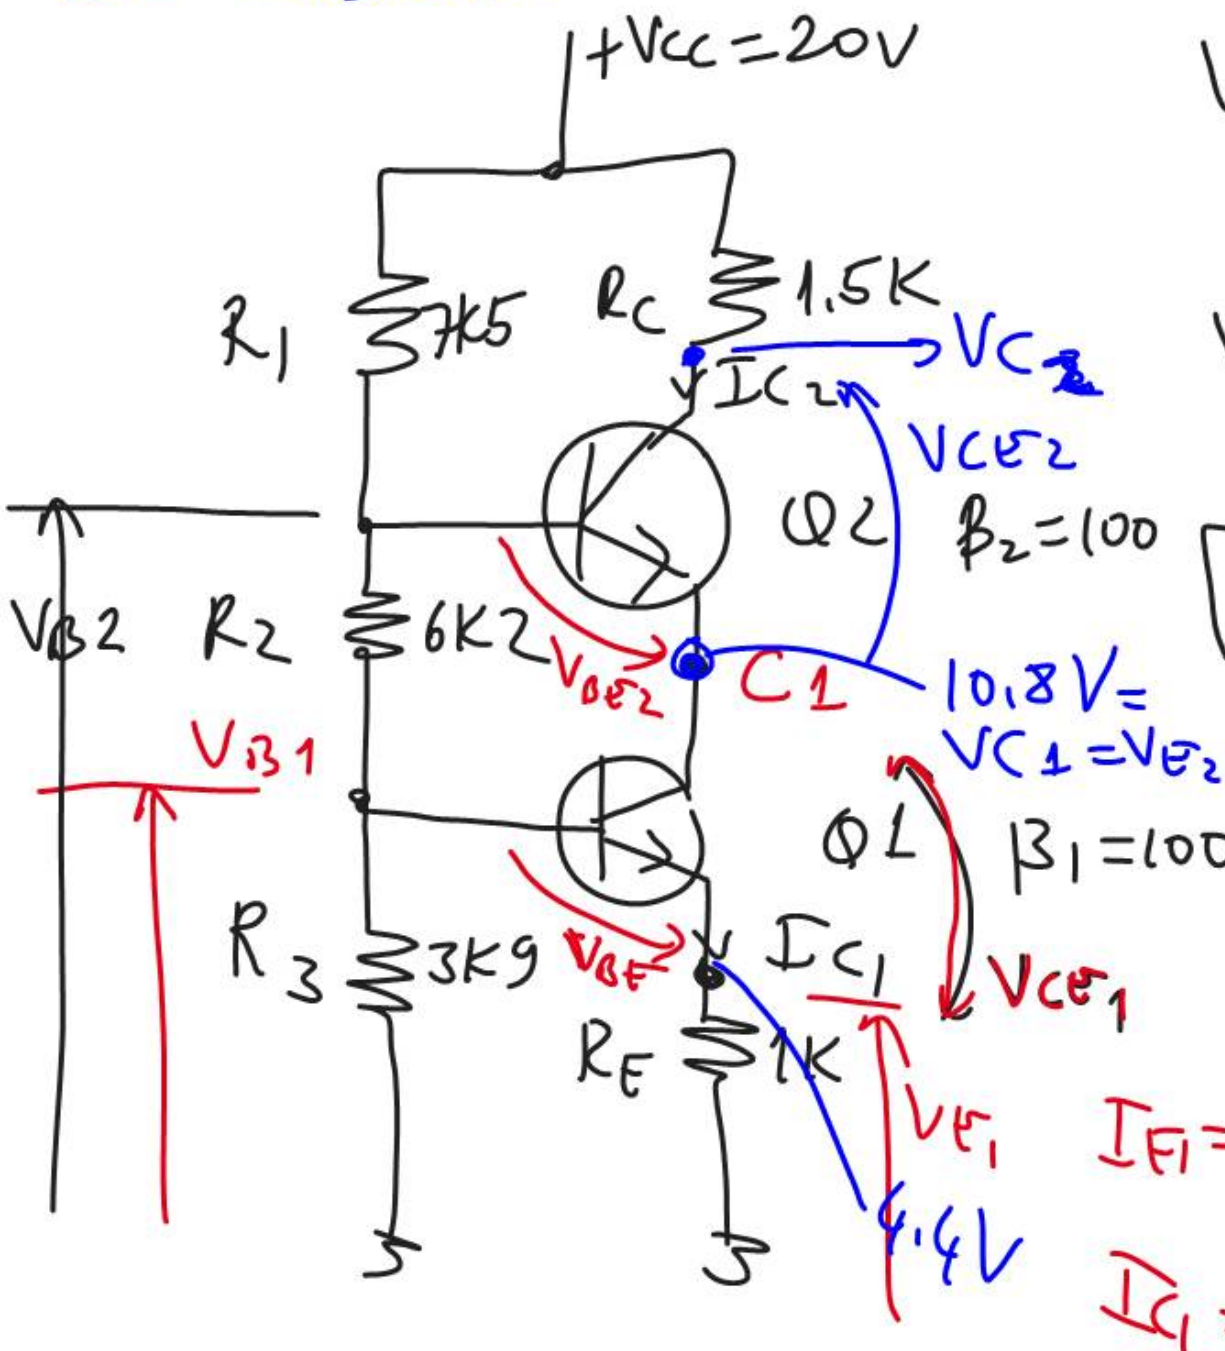 +VCC=20V
R1
7K5
RC
1.5K
VC2
IC2
VCE2
Q2
β2=100
VB2
R2
6K2
VBE2
C1
10.8V=
VC1=VE2
VB1
Q1
β1=100
R3
3K9
VBE
IC1
VCE1
RE
1K
VE1
IE1=
4.4V
IC1